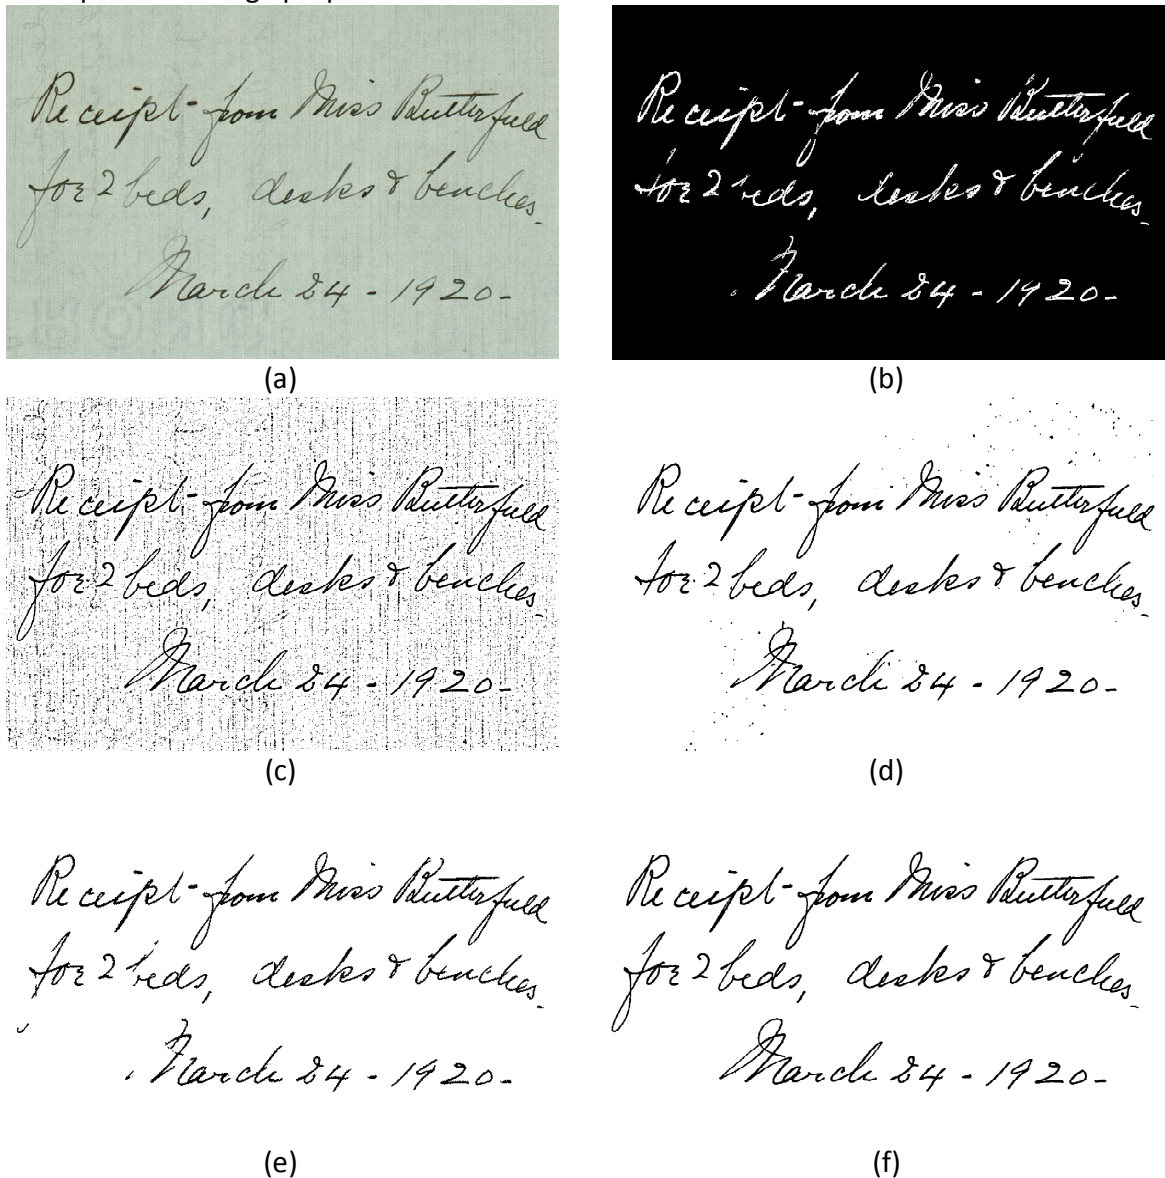 Receipt from Miss Butterfield
for 2 beds, desks & benches.
March 24 - 1920-
Receipt from Miss Butterfield
for 2 beds, desks & benches.
March 24 - 1920-
(a)
(b)
Receipt from Miss Butterfield
for 2 beds, desks & benches.
March 24 - 1920-
Receipt from Miss Butterfield
for 2 beds, desks & benches.
March 24 - 1920-
(c)
(d)
Receipt from Miss Butterfield
for 2 beds, desks & benches.
March 24 - 1920-
Receipt from Miss Butterfield
for 2 beds, desks & benches.
March 24 - 1920-
(e)
(f)